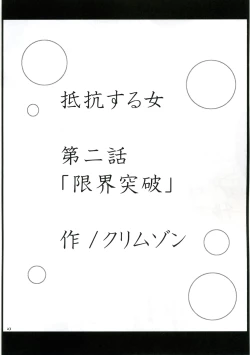 抵抗する女
第二話
「限界突破」
作 / クリムゾン